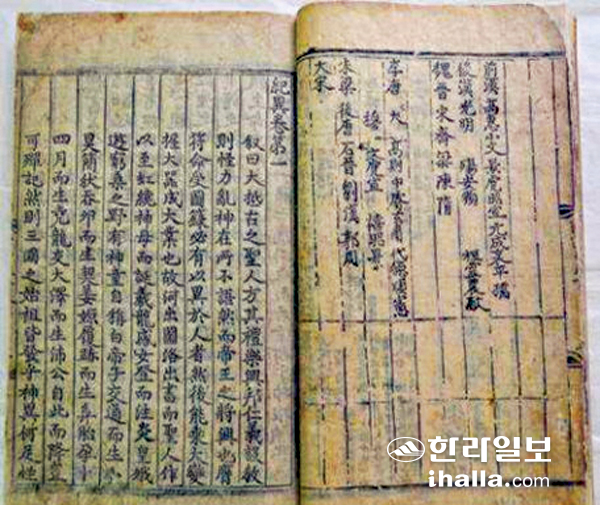 前漢 高惠小文景虎昭宣元成哀平孺
後漢光明
魏晉宋齊梁陳隋
李唐 太高則中睿玄肅代德順憲
虎宣
朱梁 後唐 石晉 劉漢 郭周
大宋
紀異卷第一
叙曰大抵古之聖人方其禮樂興邦仁義設教
則怪力亂神在所不語然而帝王之將興也膺
符命受圖籙必有以異於人者然後能乘大變
握大器成大業也故河出圖洛出書而聖人作
以至虹繞神母而誕羲龍感女登而注炎皇娥
遊窮桑之野有神童自稱白帝子交通而生小
昊簡狄吞卵而生契姜嫄履跡而生弃胎孕十
四月而生堯龍交大澤而生沛公自此而降豈
可殫記然則三國之始祖皆發乎神異何足怪
한라일보
ihalla.com